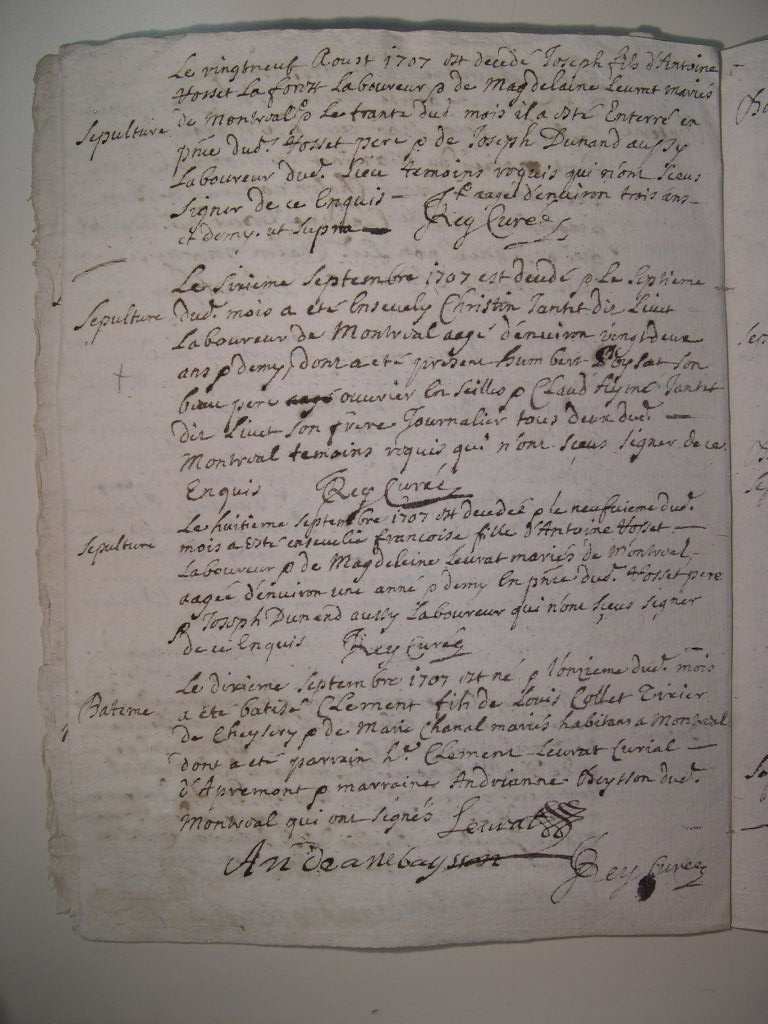 Sepulture
Le vingtneuf Aoust 1707 est decedé Joseph fils d'Antoine
Hosset La forest Laboureur p de Magdelaine Leurat mariés
de Montreal p Le trante dud. mois il a esté Enterré en
pñce dud. Hosset pere p de Joseph Dunand aussy
Laboureur dud. Lieu temoins requis qui n'ont sceus
signer de ce Enquis — aagé d'environ trois ans
et demy. ut supra — Rey Curé
Sepulture
Le sixieme Septembre 1707 est decedé p Le septieme
dud. mois a eté Ensevely Christin Tantet dit Livet
Laboureur de Montreal aagé d'environ vingt deux
ans p demy, dont a eté present humbert son
beau pere ouvrier En seilles p Claud Tantet
dit Livet son frere Journalier tous deux dud. —
Montreal temoins requis qui n'ont sçeus signer de ce
Enquis Rey Curé
Sepulture
Le huitieme septembre 1707 est decedeé p le neufvieme dud.
mois a esté ensevelie francoise fille d'Antoine Hosset —
Laboureur p de Magdeleine Leurat mariés de Montreal
aageé d'environ une anné p demy En pñce dud. Hosset pere
p Joseph Dunand aussy Laboureur qui n'ont sçeus signer
de ce Enquis Rey Curé
Bateme
Le dixieme septembre 1707 est né p l'onzieme dud. mois
a eté batisé Clement fils de Louis Collet Tixier
de Cheysery p de Marie Chanal mariés habitans a Montreal
dont a eté parrain h. Clement Leurat Curial —
d'Apremont p marraine Andrianne Beysson dud.
Montreal qui ont signés Leurat
Andreane baysson Rey Curé